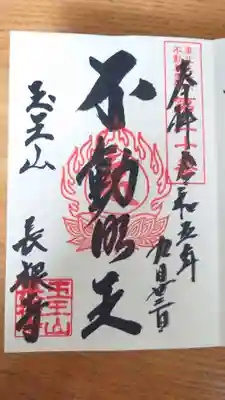 奉拝 令和五年
九月廿二日
不動明王
玉王山
長根寺